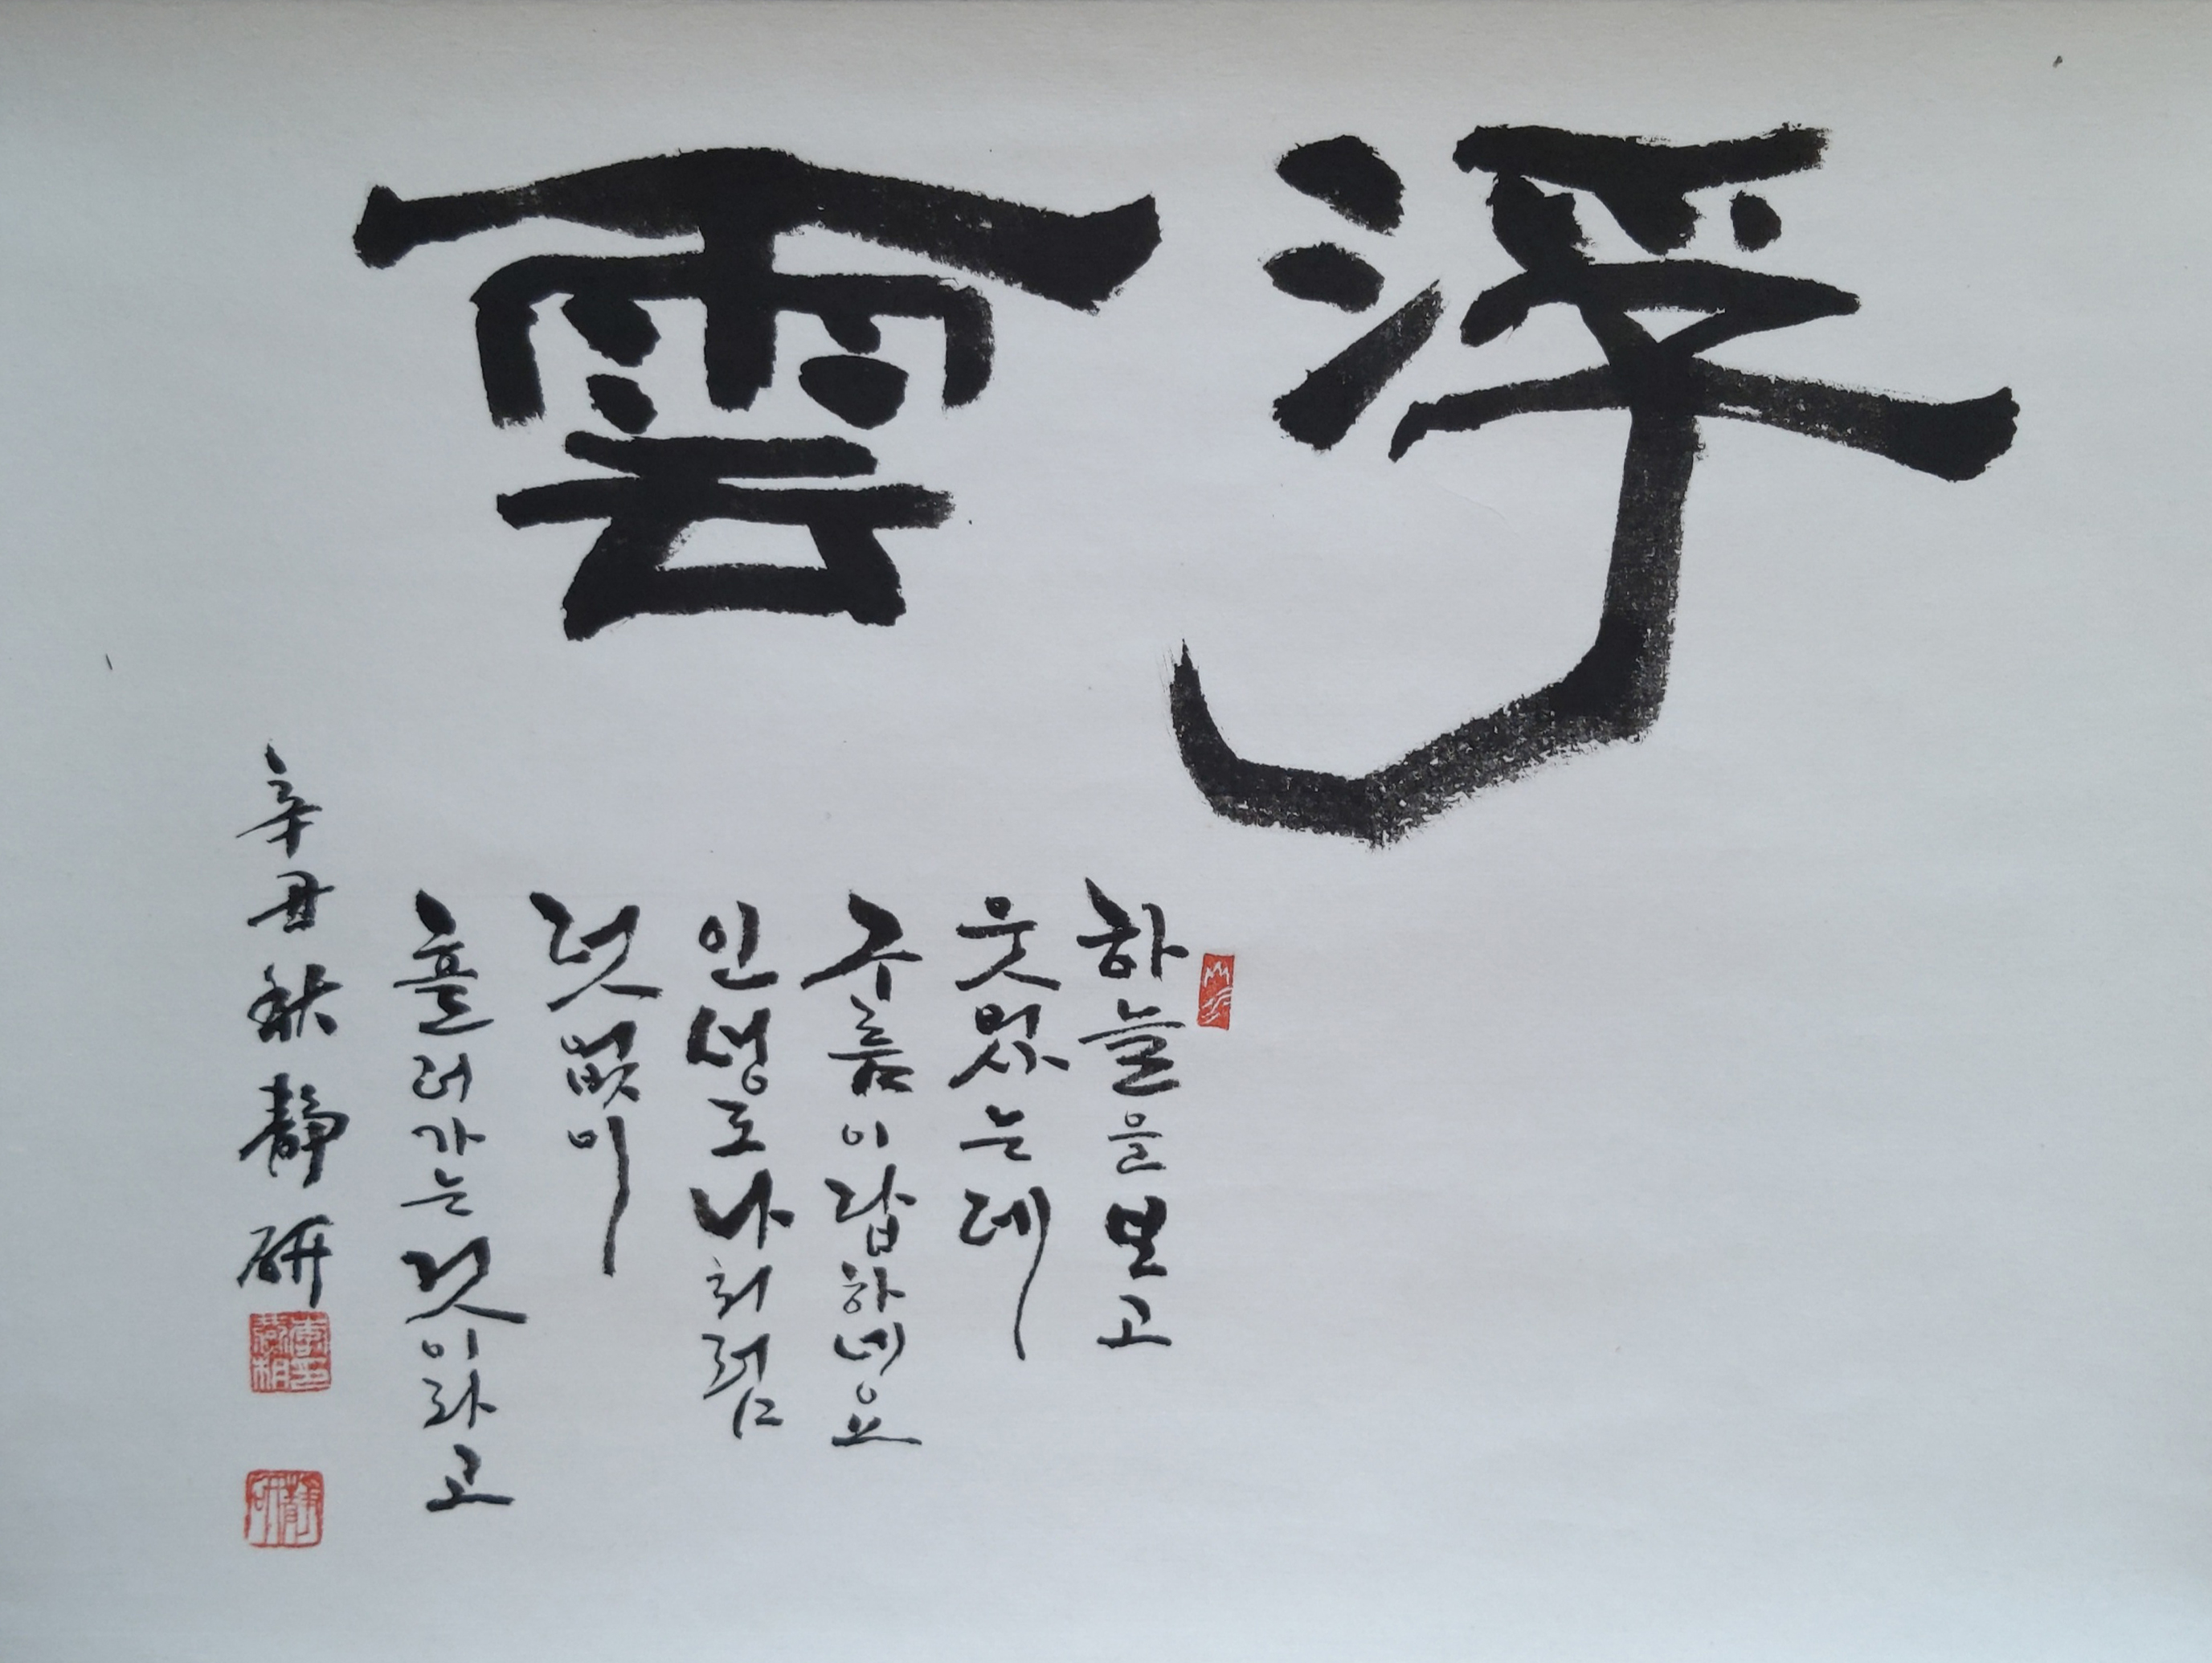 浮雲
하늘을 보고
웃었는데
구름이 답하네요
인생도 나처럼
덧없이
흘러가는 것이라고
辛丑秋 靜硏